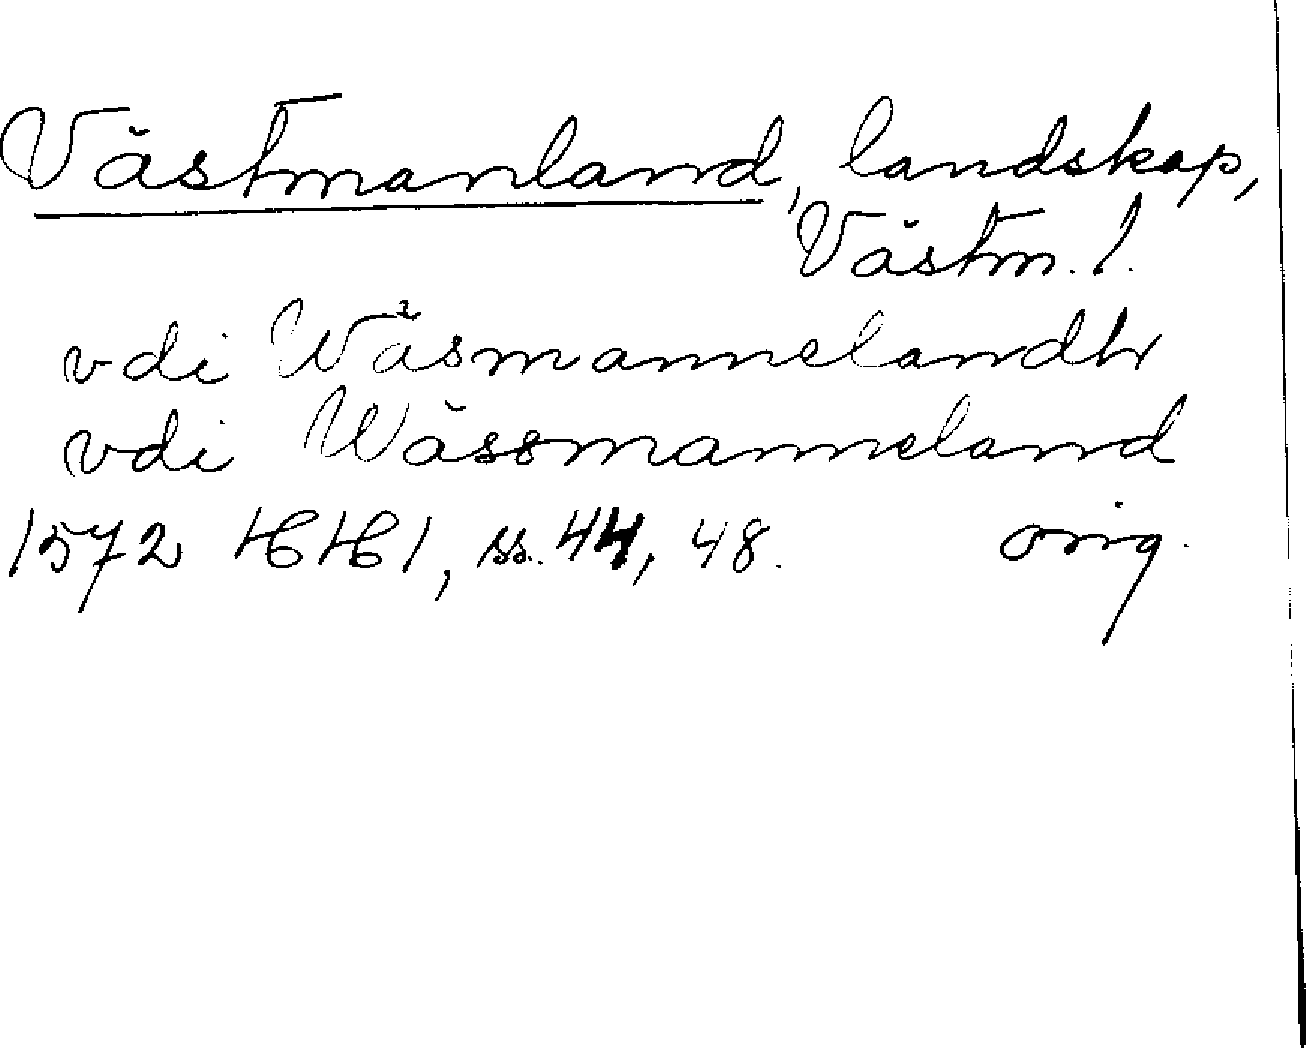 Västmanland, landskap,
Västm. l.
vdi Wäsmannelandh
vdi Wässmanneland
1572 HH 1, ss. 44, 48. orig.